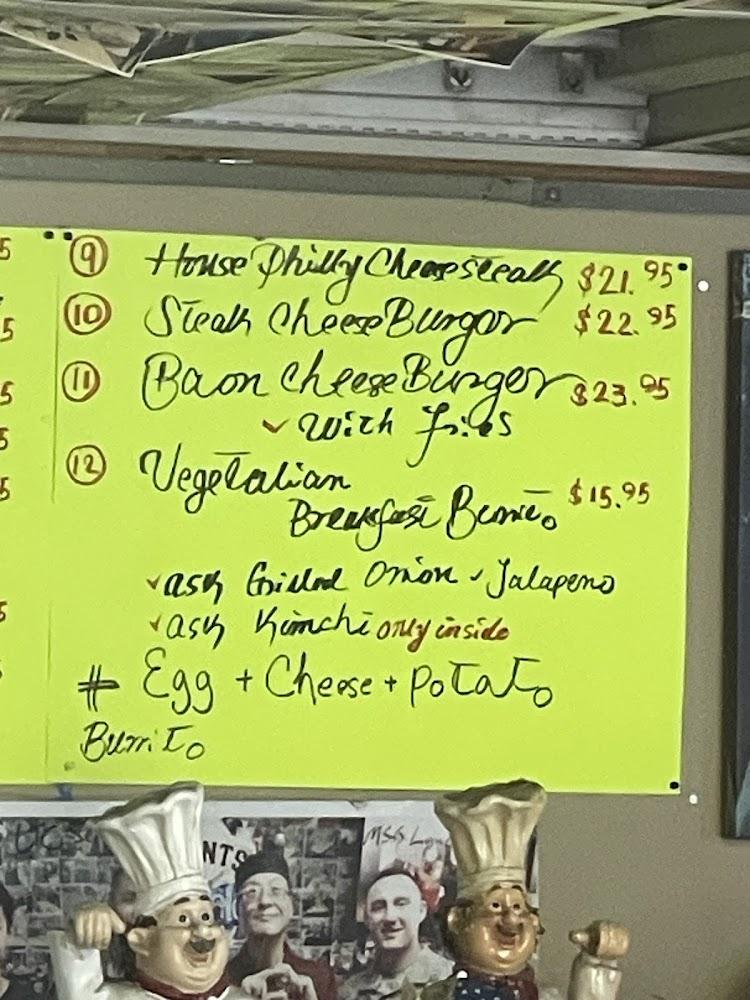 9 House Philly Cheesesteak $21.95
10 Steak Cheese Burger $22.95
11 Bacon Cheese Burger $23.95
✓ With fries
12 Vegetalian
Breakfast Burrito $15.95
✓ ask Grilled Onion ✓ Jalapeno
✓ ask Kimchi only inside
# Egg + Cheese + Potato
Burrito
NTS
MSG